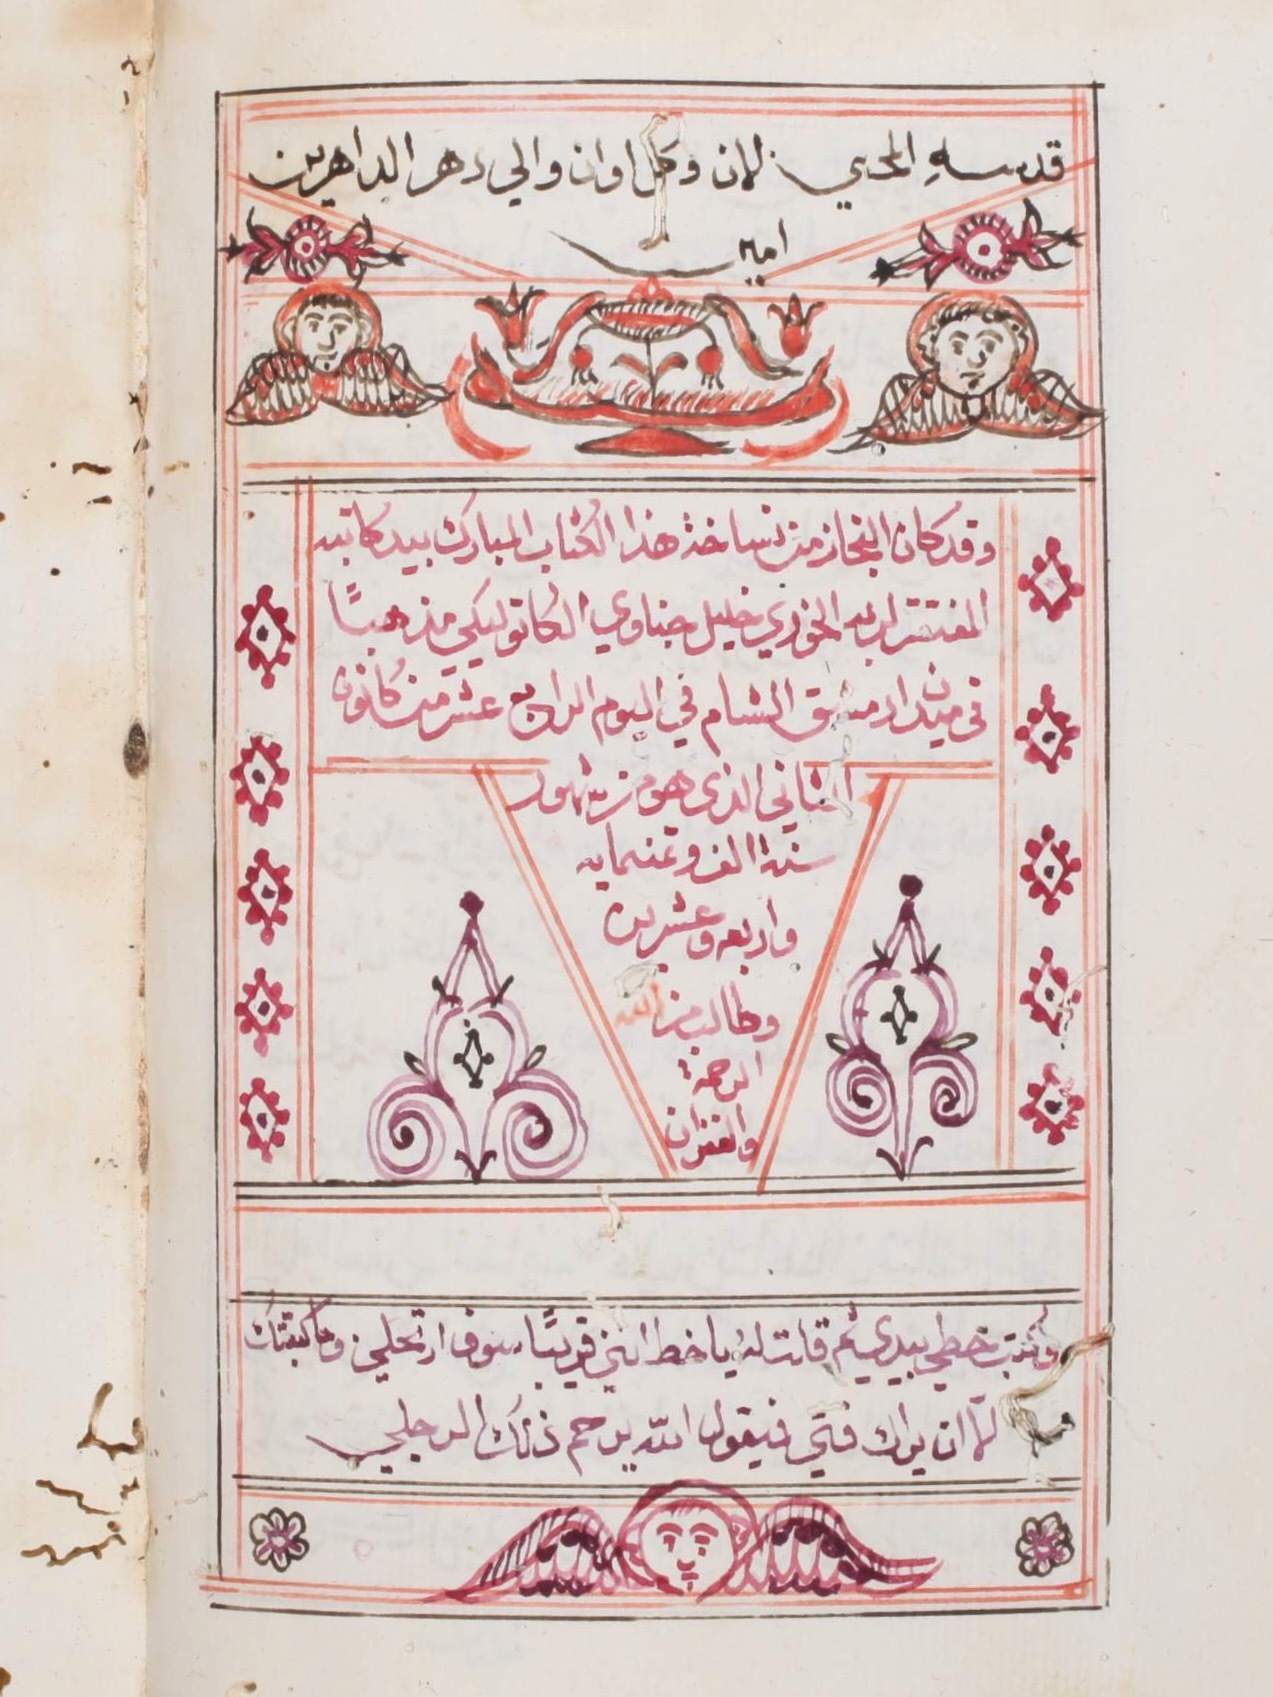 قدسهِ المحيي الان وكل اوان والي دهر الداهرين
امين
وقد كان النجاز من نساخة هذا الكتاب المبارك بيد كاتبه
المفتقر لربه الخوري خليل الكاتوليكي مذهبًا
في ميدان دمشق الشام في اليوم الرابع عشر من كانون
الثاني الذي هو من شهور
سنة الف وثمنمايه
واربعه وعشرين
وطالب من الله
الرحمة
والغفران
خطي بيدي ثم قلت لهُ يا خط انني قريبًا سوف ارتحلي وما كتبتك
الّا ان يراك فتى فيقول الله يرحم ذلك الرجلي